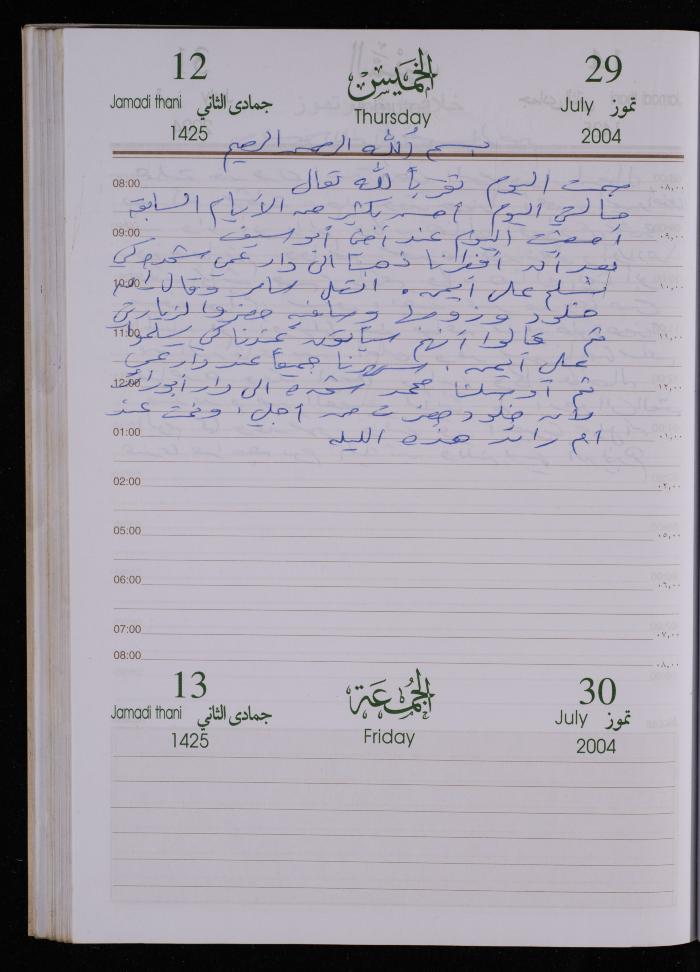 12 الخميس 29
Jamadi thani جمادى الثاني Thursday July تموز
1425 2004
بسم الله الرحمن الرحيم
08:00 صمت اليوم تقرباً لله تعالى ٠٨,٠٠
حالتي اليوم أحسن بكثير من الأيام السابقة
09:00 أمضيت اليوم عند أخي أبو سيف ٠٩,٠٠
بعد أن أفطرنا ذهبنا الى دار عمي شحده كي
10:00 نسلم على أيمن. اتصل سامر وقال أن ١٠,٠٠
خلود وزوجها حضروا لزيارتي
11:00 ثم قالوا أنهم سيأتون عندنا كي يسلموا ١١,٠٠
على أيمن. سهرنا جميعاً عند دار عمي
12:00 ثم أوصلنا محمد شحده الى دار أبو رائد ١٢,٠٠
لأن خلود حضرت من أجلي، ونمت عند
01:00 أم رائد هذه الليلة ٠١,٠٠
02:00 ٠٢,٠٠
05:00 ٠٥,٠٠
06:00 ٠٦,٠٠
07:00 ٠٧,٠٠
08:00 ٠٨,٠٠
13 الجمعة 30
Jamadi thani جمادى الثاني Friday July تموز
1425 2004